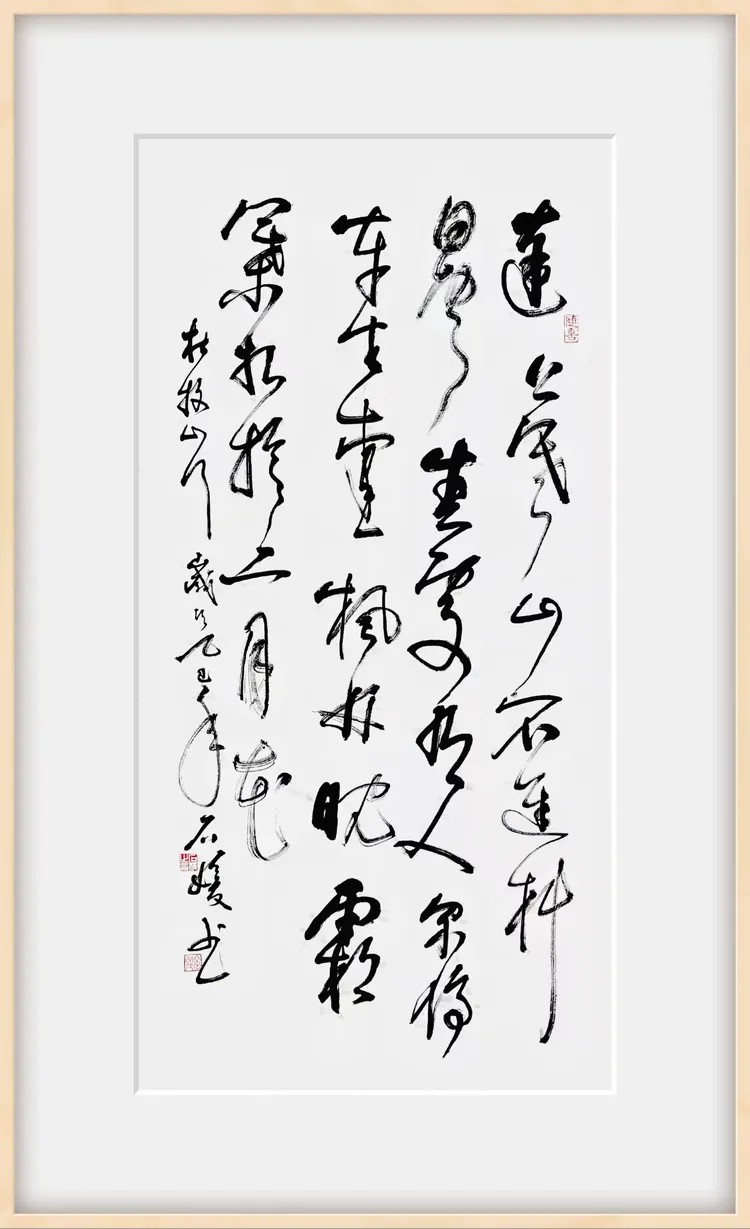 遠上寒山石徑斜
白雲生處有人家停
車坐愛楓林晚霜
葉紅於二月花
杜牧山行 歲次乙巳年石媛书